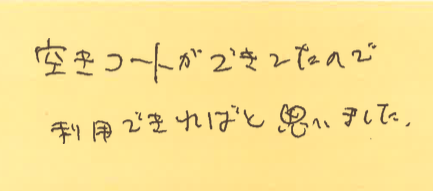 空きコートができてたので
利用できればと思いました.